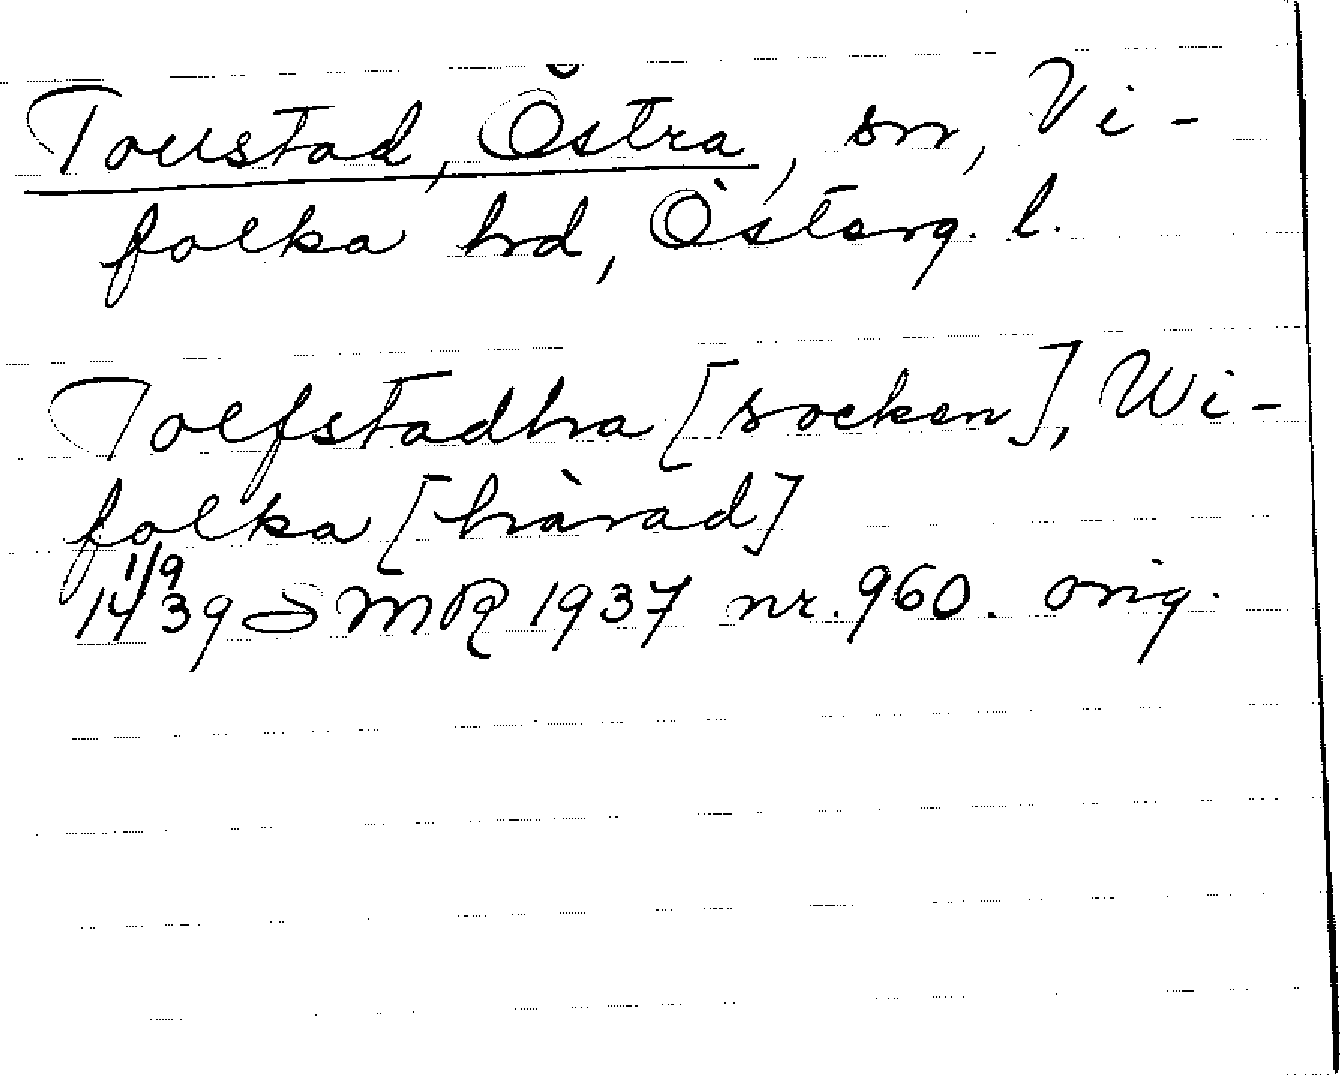 Tollstad, Östra, sn, Vi-
folka hd, Österg. l.
Tolfstadha [socken], Wi-
folka [härad]
1/9
1439 SMR 1937 nr. 960. orig.